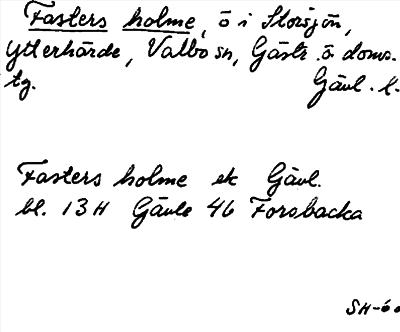 Fasters holme, ö i Storsjön,
Ytterhärde, Valbo sn, Gästr. ö doms.
tg. Gävl. l.
Fasters holme ek Gävl.
bl. 13H Gävle 46 Forsbacka
SH-60